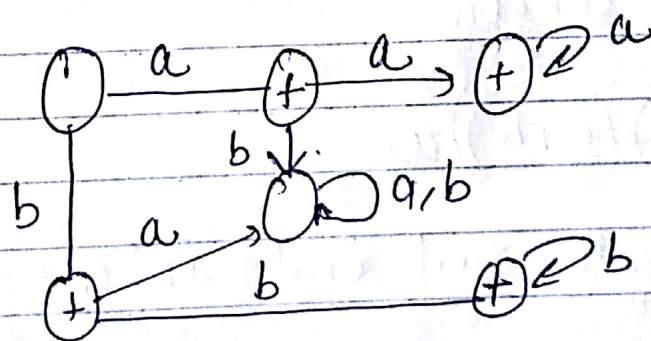 a a a
+ +
b a,b
b a
b b
+ +